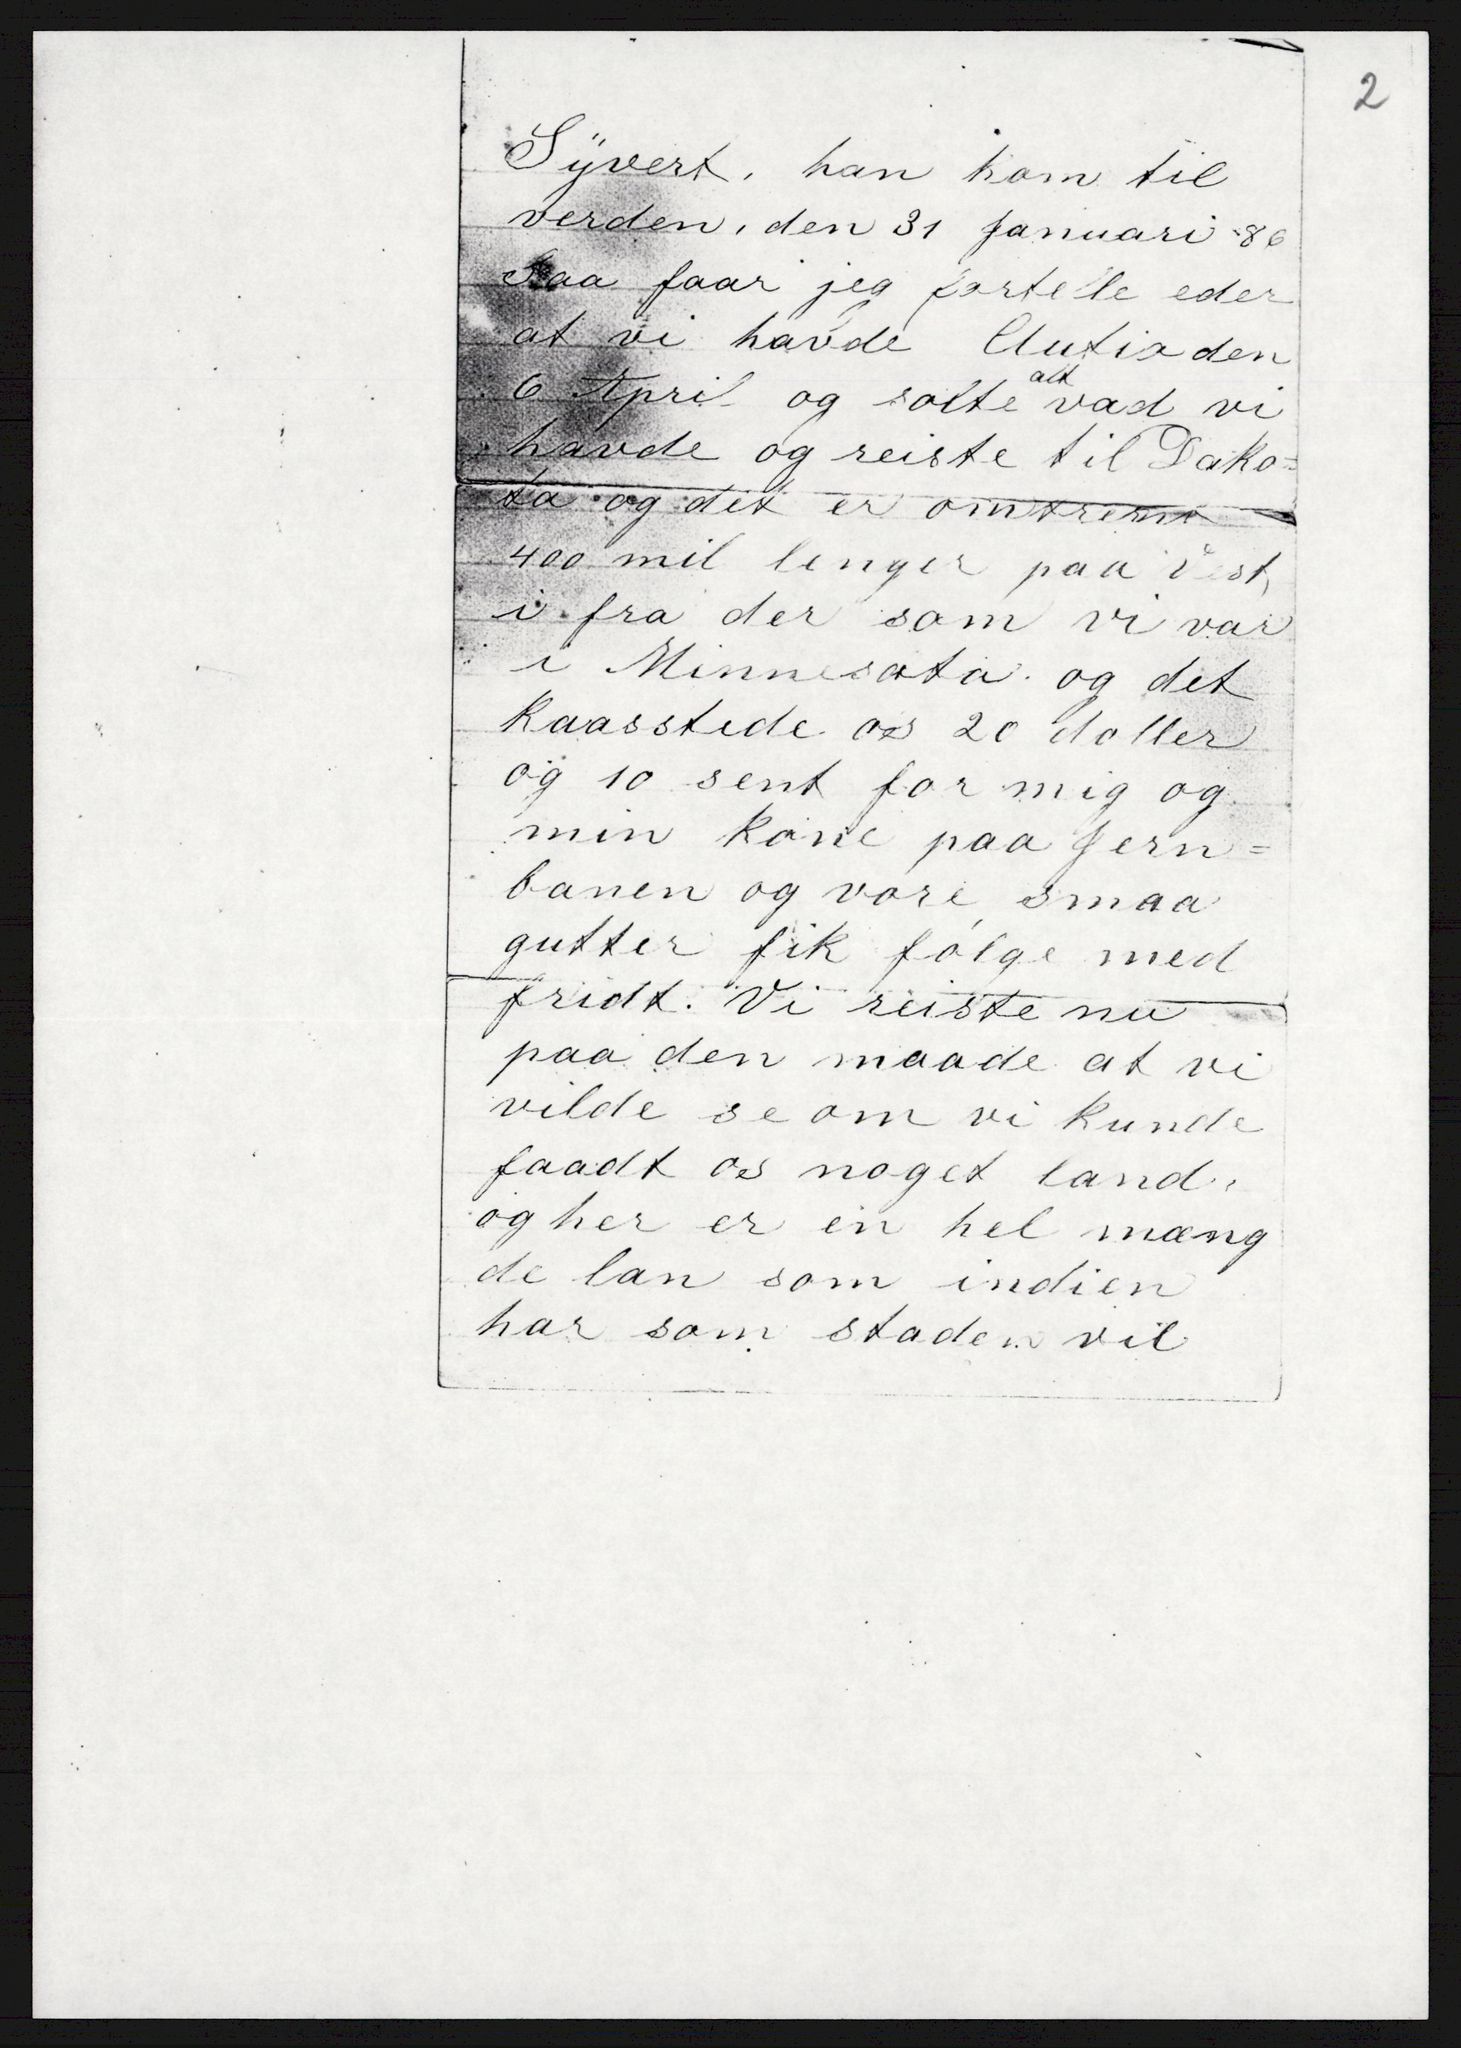 2
Syvert, han kom til
verden, den 31 Januari 86
Saa faar jeg fortelle eder
at vi havde Autio den
6 April og solte alt vad vi
havde og reiste til Dako=
ta og det er omtrent
400 mil lenger paa Vest
i fra der som vi var
i Minnesota. og det
kaasstede os 20 doller
og 10 sent for mig og
min kone paa Jern=
banen og vore smaa
gutter fik følge med
fridt. Vi reiste nu
paa den maade at vi
vilde se om vi kunde
faadt os noget land,
og her er en hel mæng
de lan som indien
har som staden vil